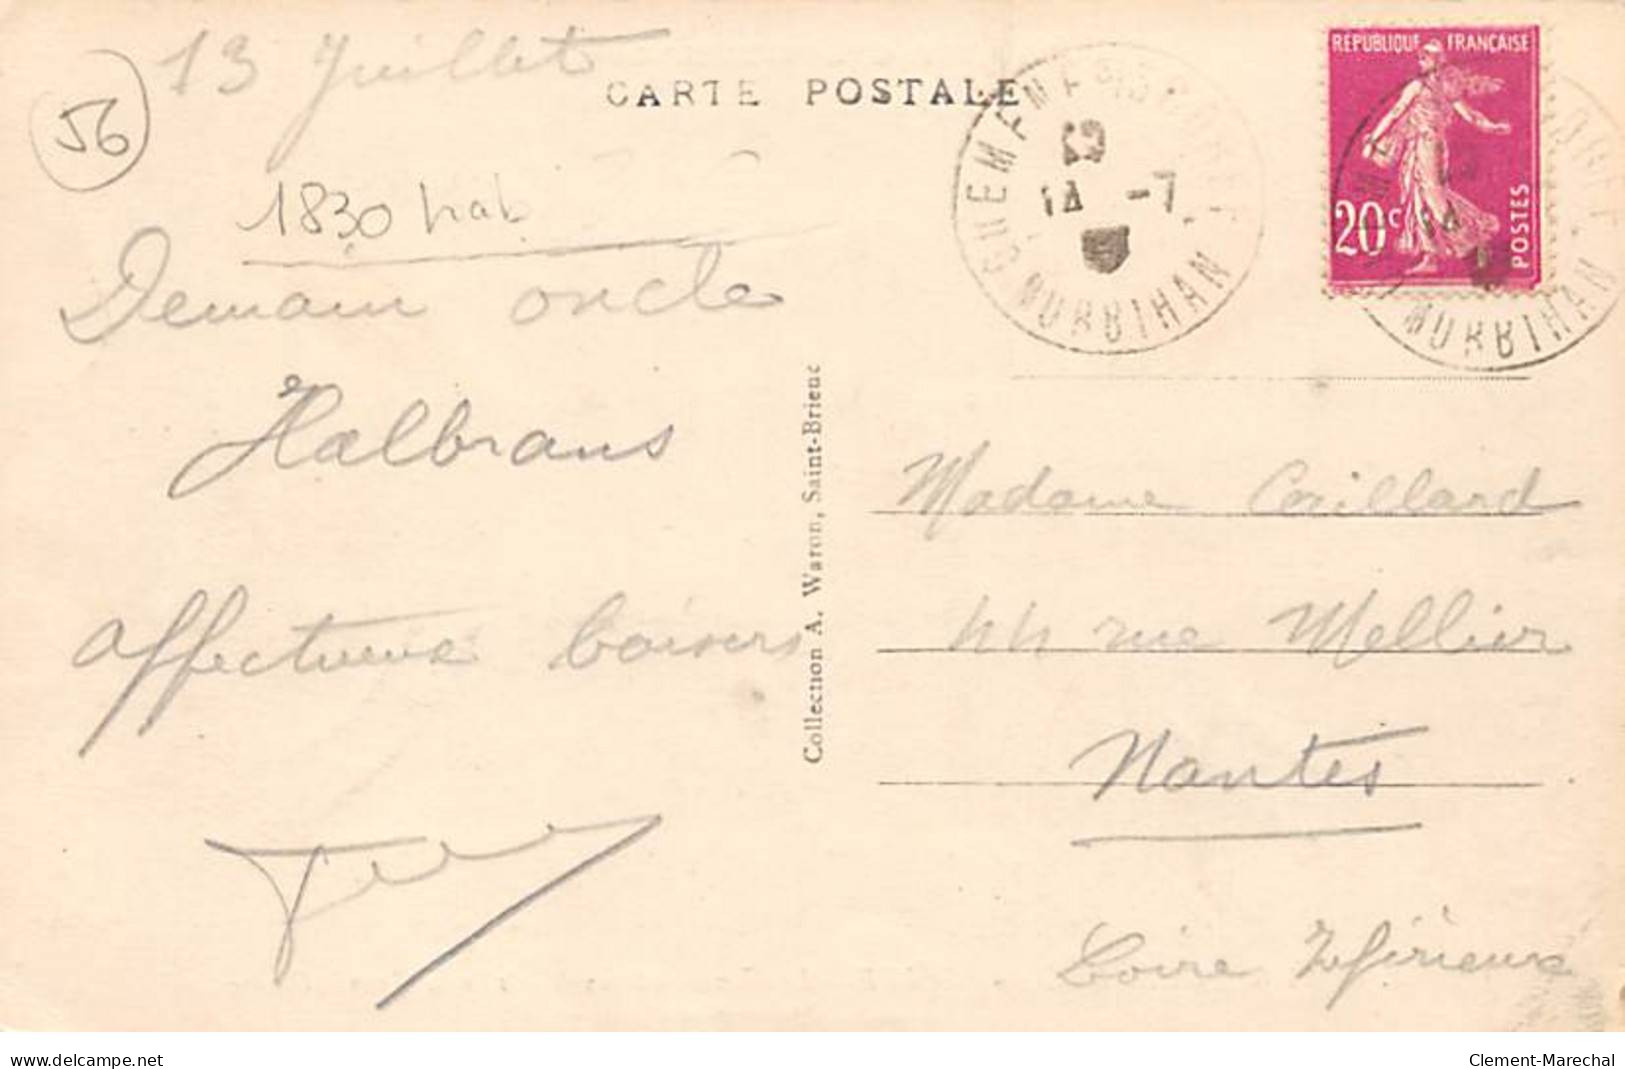 13 Juillet
56
CARTE POSTALE
1830 hab
Demain oncle
Halbrans
affectueux baisers
Collection A. Waron, Saint-Brieuc
GUEMENE
12
14 -7
MORBIHAN
REPUBLIQUE FRANÇAISE
20c
POSTES
MORBIHAN
Madame Caillard
44 rue Mellier
Nantes
Loire Inférieure
www.delcampe.net
Clement-Marechal